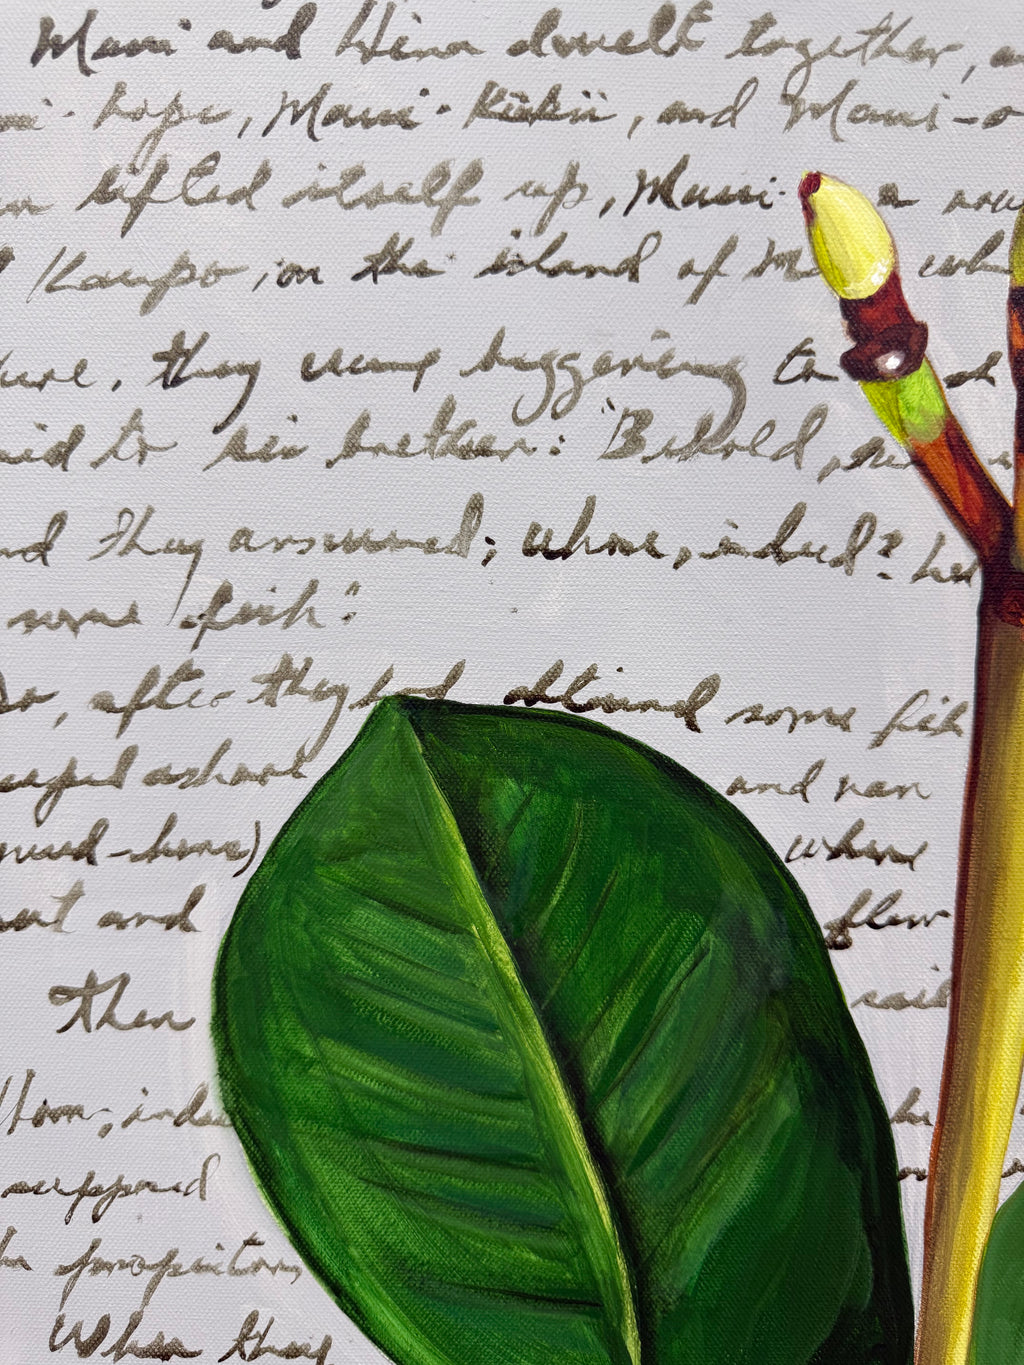 Maui and Hina dwelt together, a
hope, Maui-Kiikii, and Maui-o
lifted itself up, Maui- a now
Kaupo, on the island of M wh
ure, they were beggering to
id to his brother: "Behold,
nd they answered; whose, indeed? he
some fish"
So, after they had obtained some fish
ashore and ran
mud-hens) where
out and flew
then said
Hom, inde he
supposed
propitors,
When they